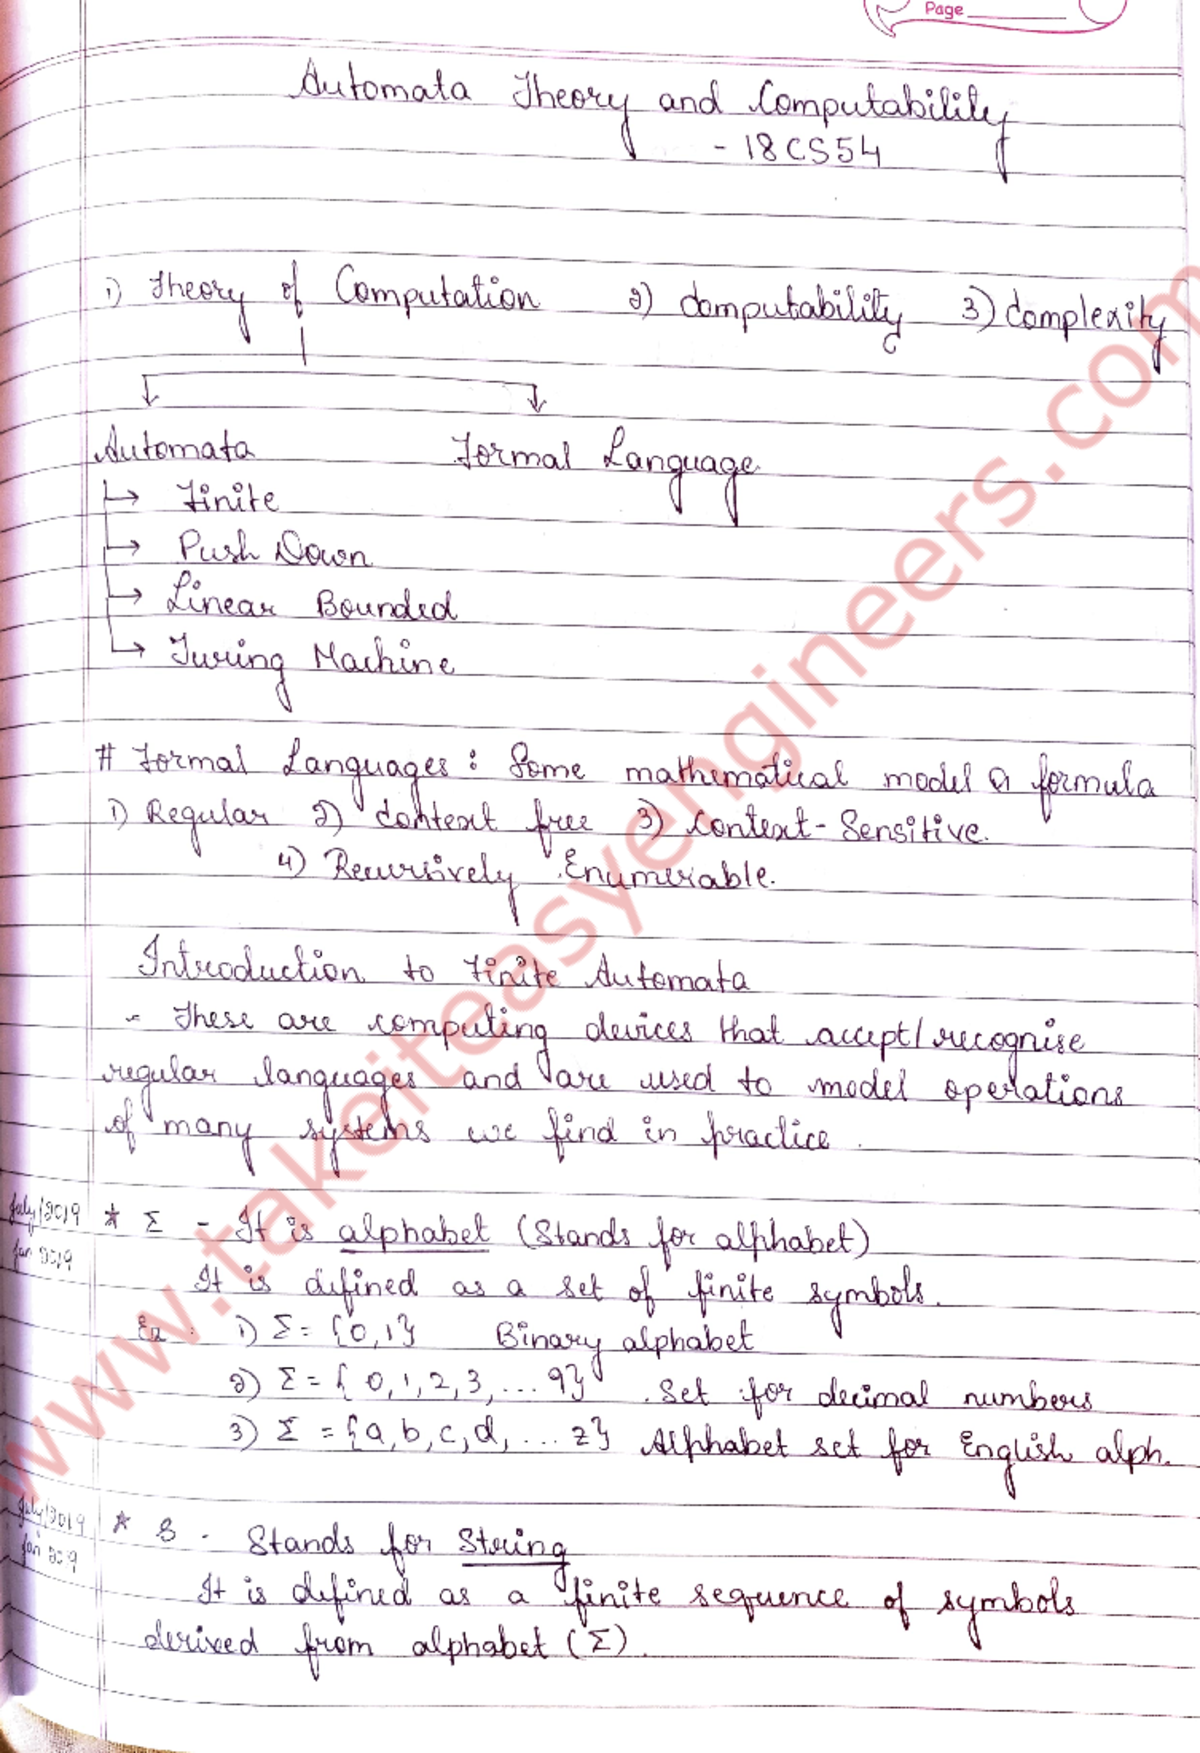 Page
Automata Theory and Computability
- 18CS54
1) Theory of Computation 2) Computability 3) Complexity
Automata Formal Language
→ Finite
→ Push Down
→ Linear Bounded
→ Turing Machine
# Formal Languages : Some mathematical model a formula
1) Regular 2) Context free 3) Context-Sensitive.
4) Recursively Enumerable.
Introduction to Finite Automata
- These are computing devices that accept/recognise
regular languages and are used to model operations
of many systems we find in practice.
July/2019 * Σ - It is alphabet (Stands for alphabet)
Jan 2019
It is defined as a set of finite symbols.
Ex : 1) Σ = {0,1} Binary alphabet
2) Σ = { 0,1,2,3,...9} Set for decimal numbers
3) Σ = {a,b,c,d,...z} Alphabet set for English alph.
July/2019 * S - Stands for String
Jan 2019
It is defined as a finite sequence of symbols
derived from alphabet (Σ).
www.takeiteasyengineers.com